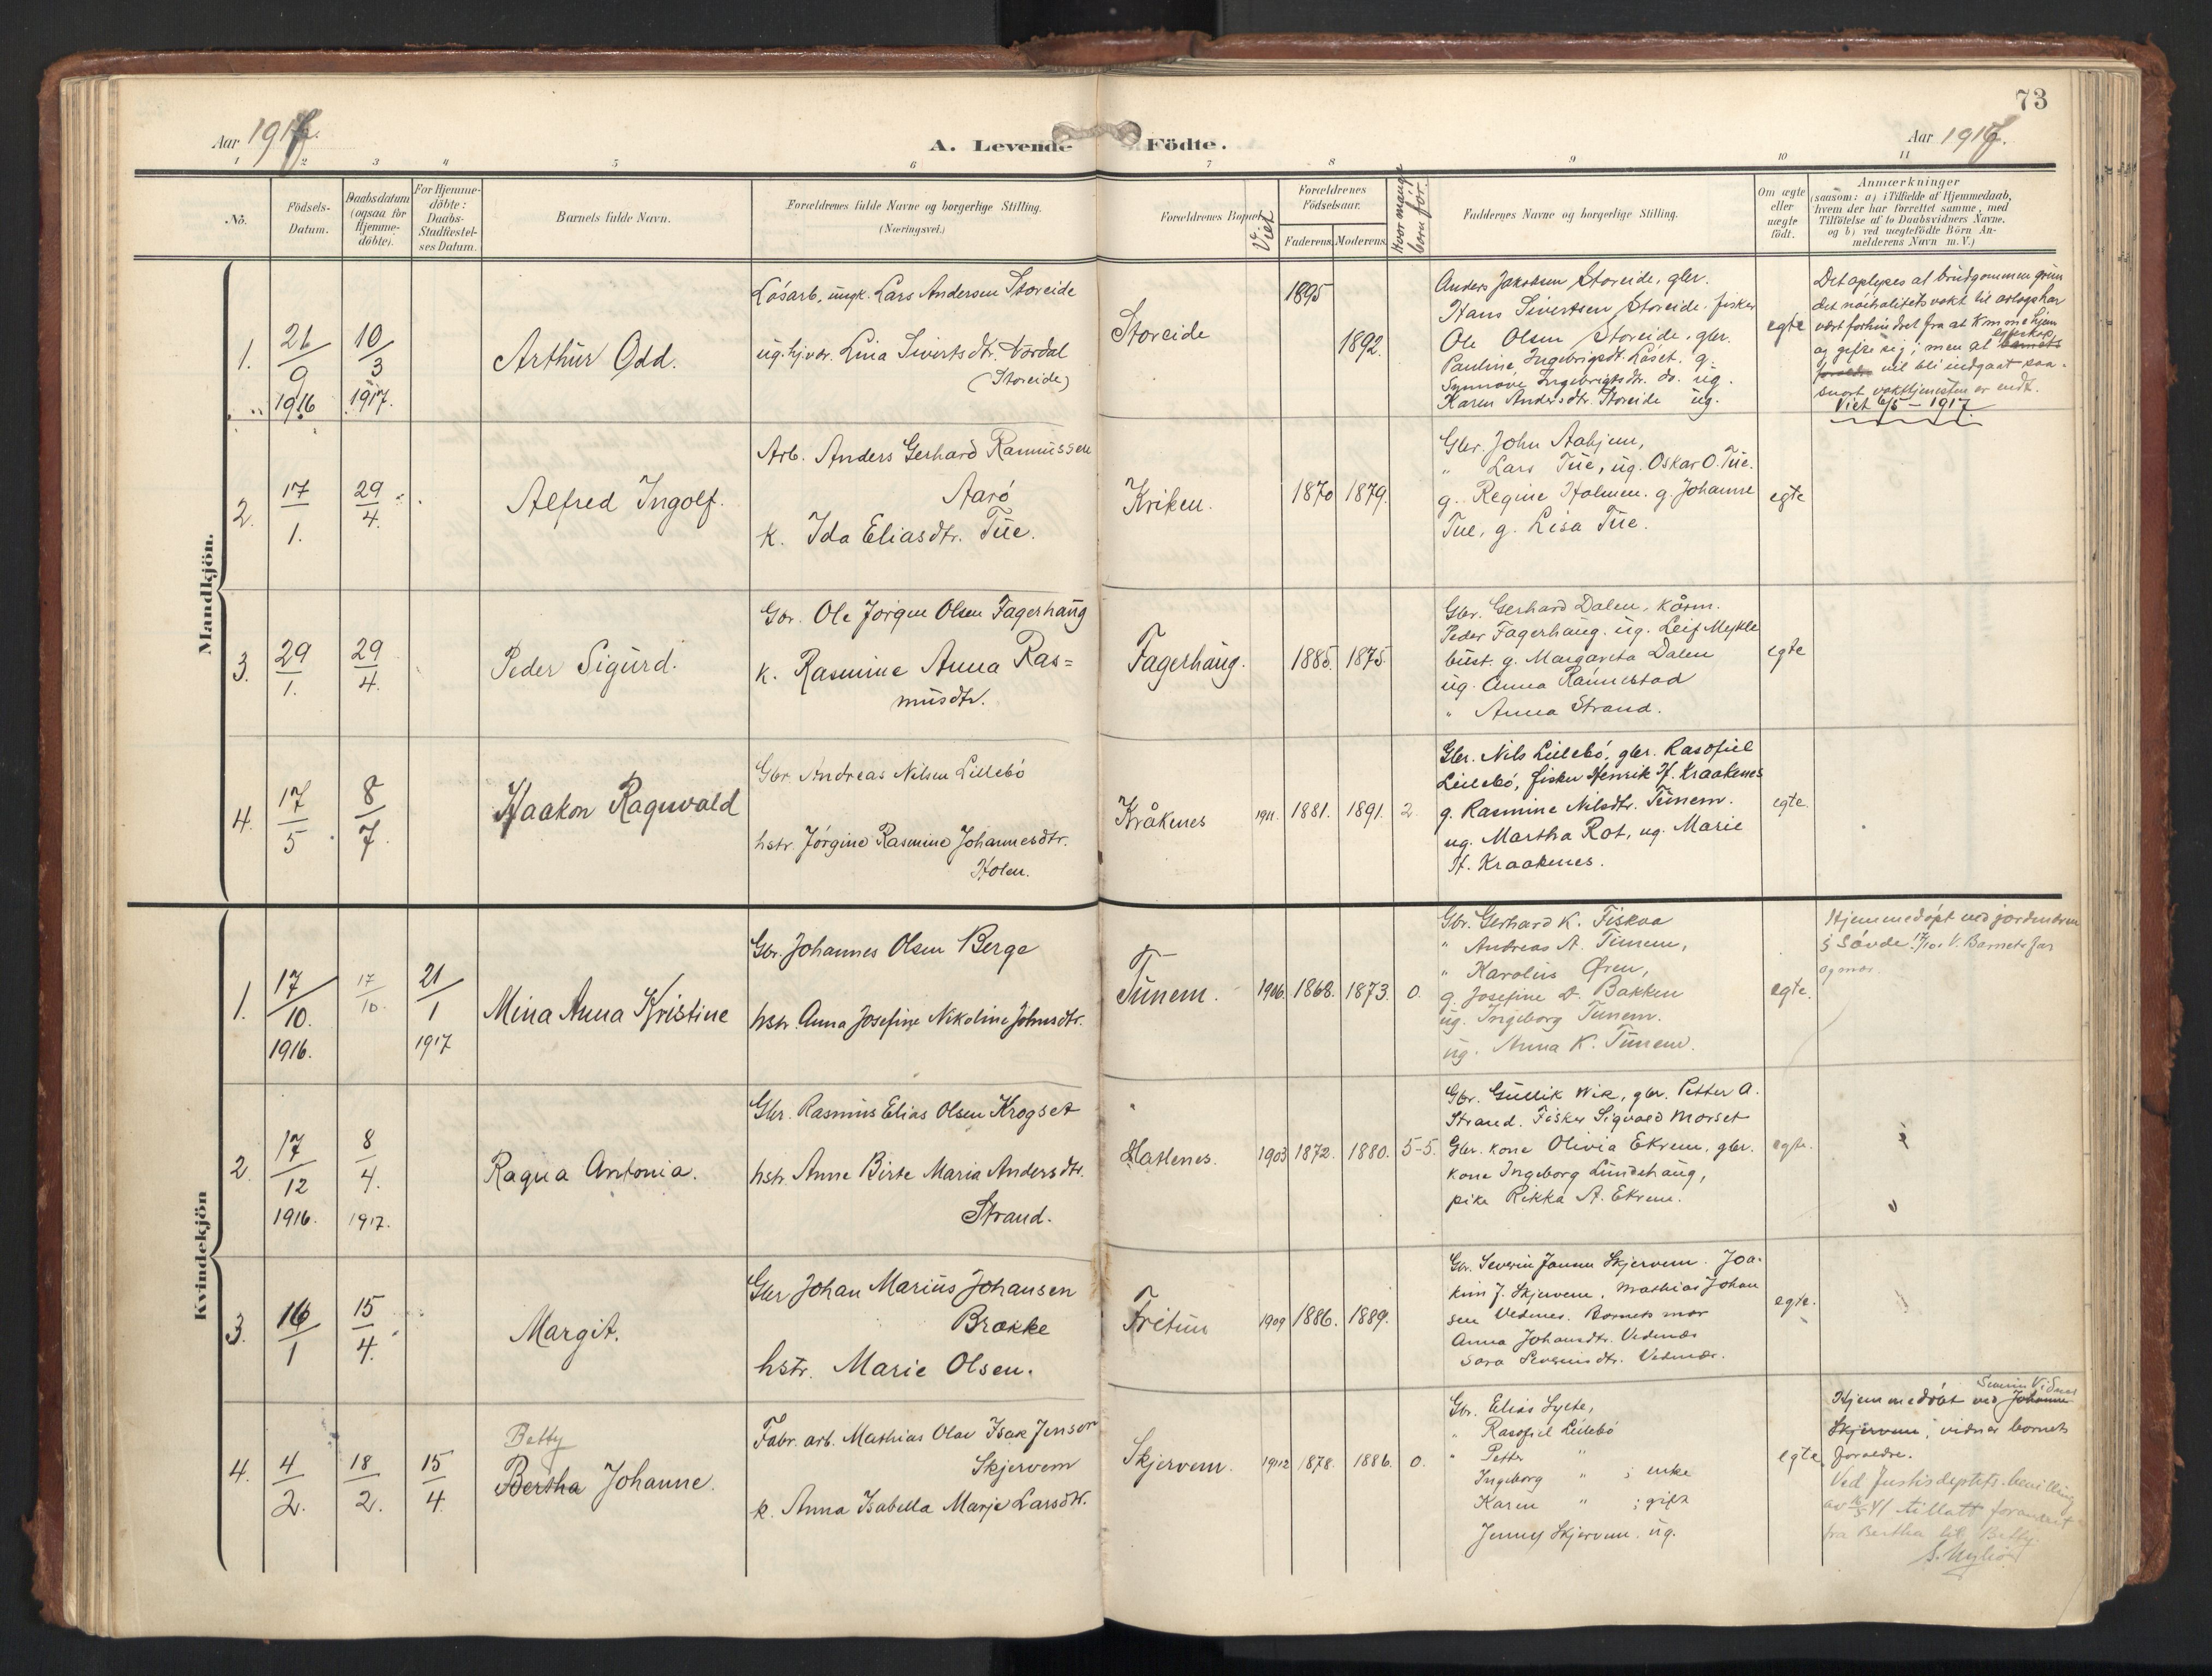 73
Aar 1917.
A. Levende Födte.
Aar 1917.
1 2 3 4 5 6 7 8 9 10 11
No.
Födsels-
Datum.
Daabsdatum
(ogsaa for
Hjemme-
döbte).
For Hjemme-
döbte:
Daabs-
Stadfæstel-
ses Datum.
Barnets fulde Navn.
Forældrenes fulde Navne og borgerlige Stilling.
(Næringsvei.)
Forældrenes Bopæl.
Viet
Forældrenes
Födselsaar.
Faderens. Moderens.
Hvor mange
born før.
Faddernes Navne og borgerlige Stilling.
Om ægte
eller
uægte
födt.
Anmærkninger
(saasom: a) i Tilfælde af Hjemmedaab,
hvem der har forrettet samme, med
Tilföielse af to Daabsvidners Navne,
og b) ved uægtefödte Börn An-
melderens Navn m. V.)
Mandkjön.
1.
26/9
1916
10/3
1917.
Arthur Odd.
Lösarb. ungk. Lars Andersen Storeide
ug. hjvær. Lina Sivertsdtr. Nordal
(Storeide)
Storeide
1895
1892.
Anders Jakobsen Storeide, gbr.
Hans Sivertsen Storeide. fisker
Ole Olsen Storeide, gbr.
Pauline Ingebrigtdt. Löset. g.
Synnöve Ingebrigtsdtr. do. ug.
Karen Andersdtr. Storeide ug.
egte
Det oplyses at brudgommen grun
det nøitralitetsvakt til orlogs har
vært forhindret fra at komme hjem
og gifte sig; men at egteskap barnets
foreldre vil bli indgaat saa-
snart vakttjenesten er endt.
Viet 6/5 - 1917
2.
17/1.
29/4.
Alfred Ingolf.
Arb. Anders Gerhard Rasmussen
Aarö
k. Ida Eliasdtr. Tue.
Kriken.
1870 1879.
Gbr. John Aahjem,
" Lars Tue, ug. Oskar O. Tue.
g. Regine Holmen. g. Johanne
Tue, g. Lisa Tue.
egte
3.
29/1.
29/4.
Peder Sigurd.
Gbr. Ole Jörgen Olsen Fagerhaug
k. Rasmine Anna Ras=
musdtr.
Fagerhaug.
1885. 1875.
Gbr. Gerhard Dalen, kårm.
Peder Fagerhaug. ug. Leif Mykle
bust. g. Margareta Dalen
ug. Anna Rönnestad
" Anna Strand.
egte
4.
17/5
8/7.
Haakon Ragnvald
Gbr. Andreas Nilsen Lillebö
hstr. Jörgine Rasmine Johannesdtr.
Holen.
Kråkenes
1911. 1881. 1891. 2
Gbr. Nils Lillebö, gbr. Rasofiel
Lillebö, fisker Henrik H. Kraakenes
g. Rasmine Nilsdtr. Tunem.
ug. Martha Rot, ug. Marie
H. Kraakenes.
egte.
Kvindekjön
1.
17/10.
1916.
17/10.
21/1
1917
Mina Anna Kristine
Gbr. Johannes Olsen Berge
hstr. Anna Josefine Nikoline Johnsdtr.
Tunem.
1906. 1868. 1873. 0.
Gbr. Gerhard K. Fiskaa
" Andreas A. Tunem,
" Karolus Øren,
g. Josefine D. Bakken
ug. Ingeborg Tunem.
ug. Anna K. Tunem.
egte.
Hjemmedöpt ved jordmoren
i Sövde 17/10. V. Barnets far
og mor.
2
17/12
1916.
8/4.
1917.
Ragna Antonia.
Gbr. Rasmus Elias Olsen Krogset
hstr. Anne Birte Maria Andersdtr.
Strand.
Hatlenes.
1903 1872. 1880. 5-5.
Gbr. Gullik Wik, gbr. Petter A.
Strand. Fisker Sigvald Morset
Gbr. kone Olivia Ekrem, gbr.
kone Ingeborg Lundehaug,
pike Rikka A. Ekrem.
egte.
3.
16/1
15/4.
Margit.
Gbr Johan Marius Johansen
Brække
hstr. Marie Olsen.
Fritun
1909 1886. 1889.
Gbr. Severin Jansen Skjervem. Joa-
kim J. Skjervem. Mathias Johan
sen Vedenes. Barnets mor
Anna Johansdtr. Vedenæs
Sara Severinsdtr. Vedenæs.
egte.
4.
4/2.
18/2.
15/4.
Betty
Bertha Johanne.
Fabr. arb. Mathias Olav Isak Jensen
Skjervem
k. Anna Isabella Marje Larsdtr.
Skjervem.
1912 1878. 1886. 0.
Gbr. Elias Lycke,
" Rasofiel Lillebö
" Petter "
Ingeborg " ; enke
Karen " ; gift
Jenny Skjervem. ug.
egte
Severin Vidnes
Hjemmedöbt ved Johanne
Skjervem; vidner barnets
foreldre.
Ved Justisdeptets bevilling
av 16/5 41 tillatt forandret
fra Bertha til Betty.